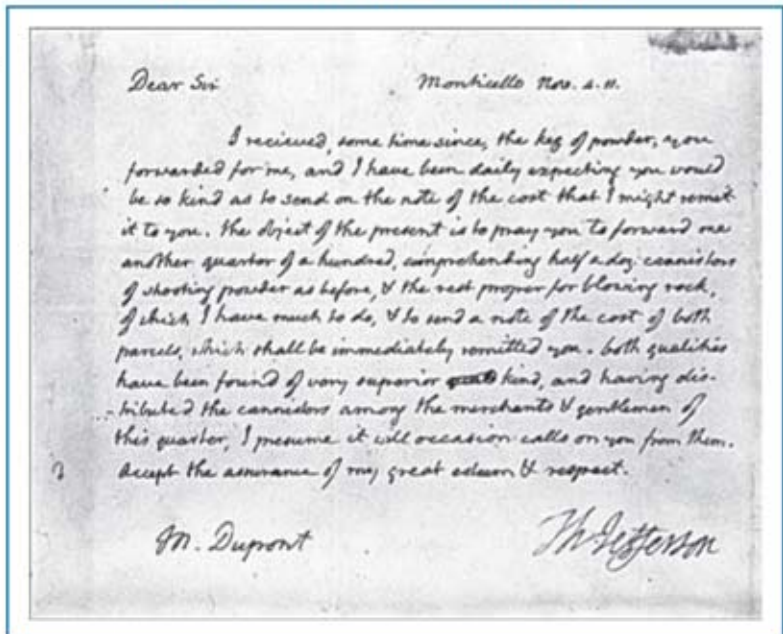 Dear Sir Monticello Nov. 4. 11.
I recieved, some time since, the keg of powder, you
forwarded for me, and I have been daily expecting you would
be so kind as to send on the note of the cost that I might remit
it to you. the object of the present is to pray you to forward me
another quarter of a hundred, comprehending half a doz. cannisters
of shooting powder as before, & the rest proper for blowing rock,
of which I have much to do, & to send a note of the cost of both
parcels, which shall be immediately remitted you. both qualities
have been found of very superior kind, and having dis-
-tributed the cannisters among the merchants & gentlemen of
this quarter, I presume it will occasion calls on you from them.
Accept the assurance of my great esteem & respect.
M. Dupont Th Jefferson